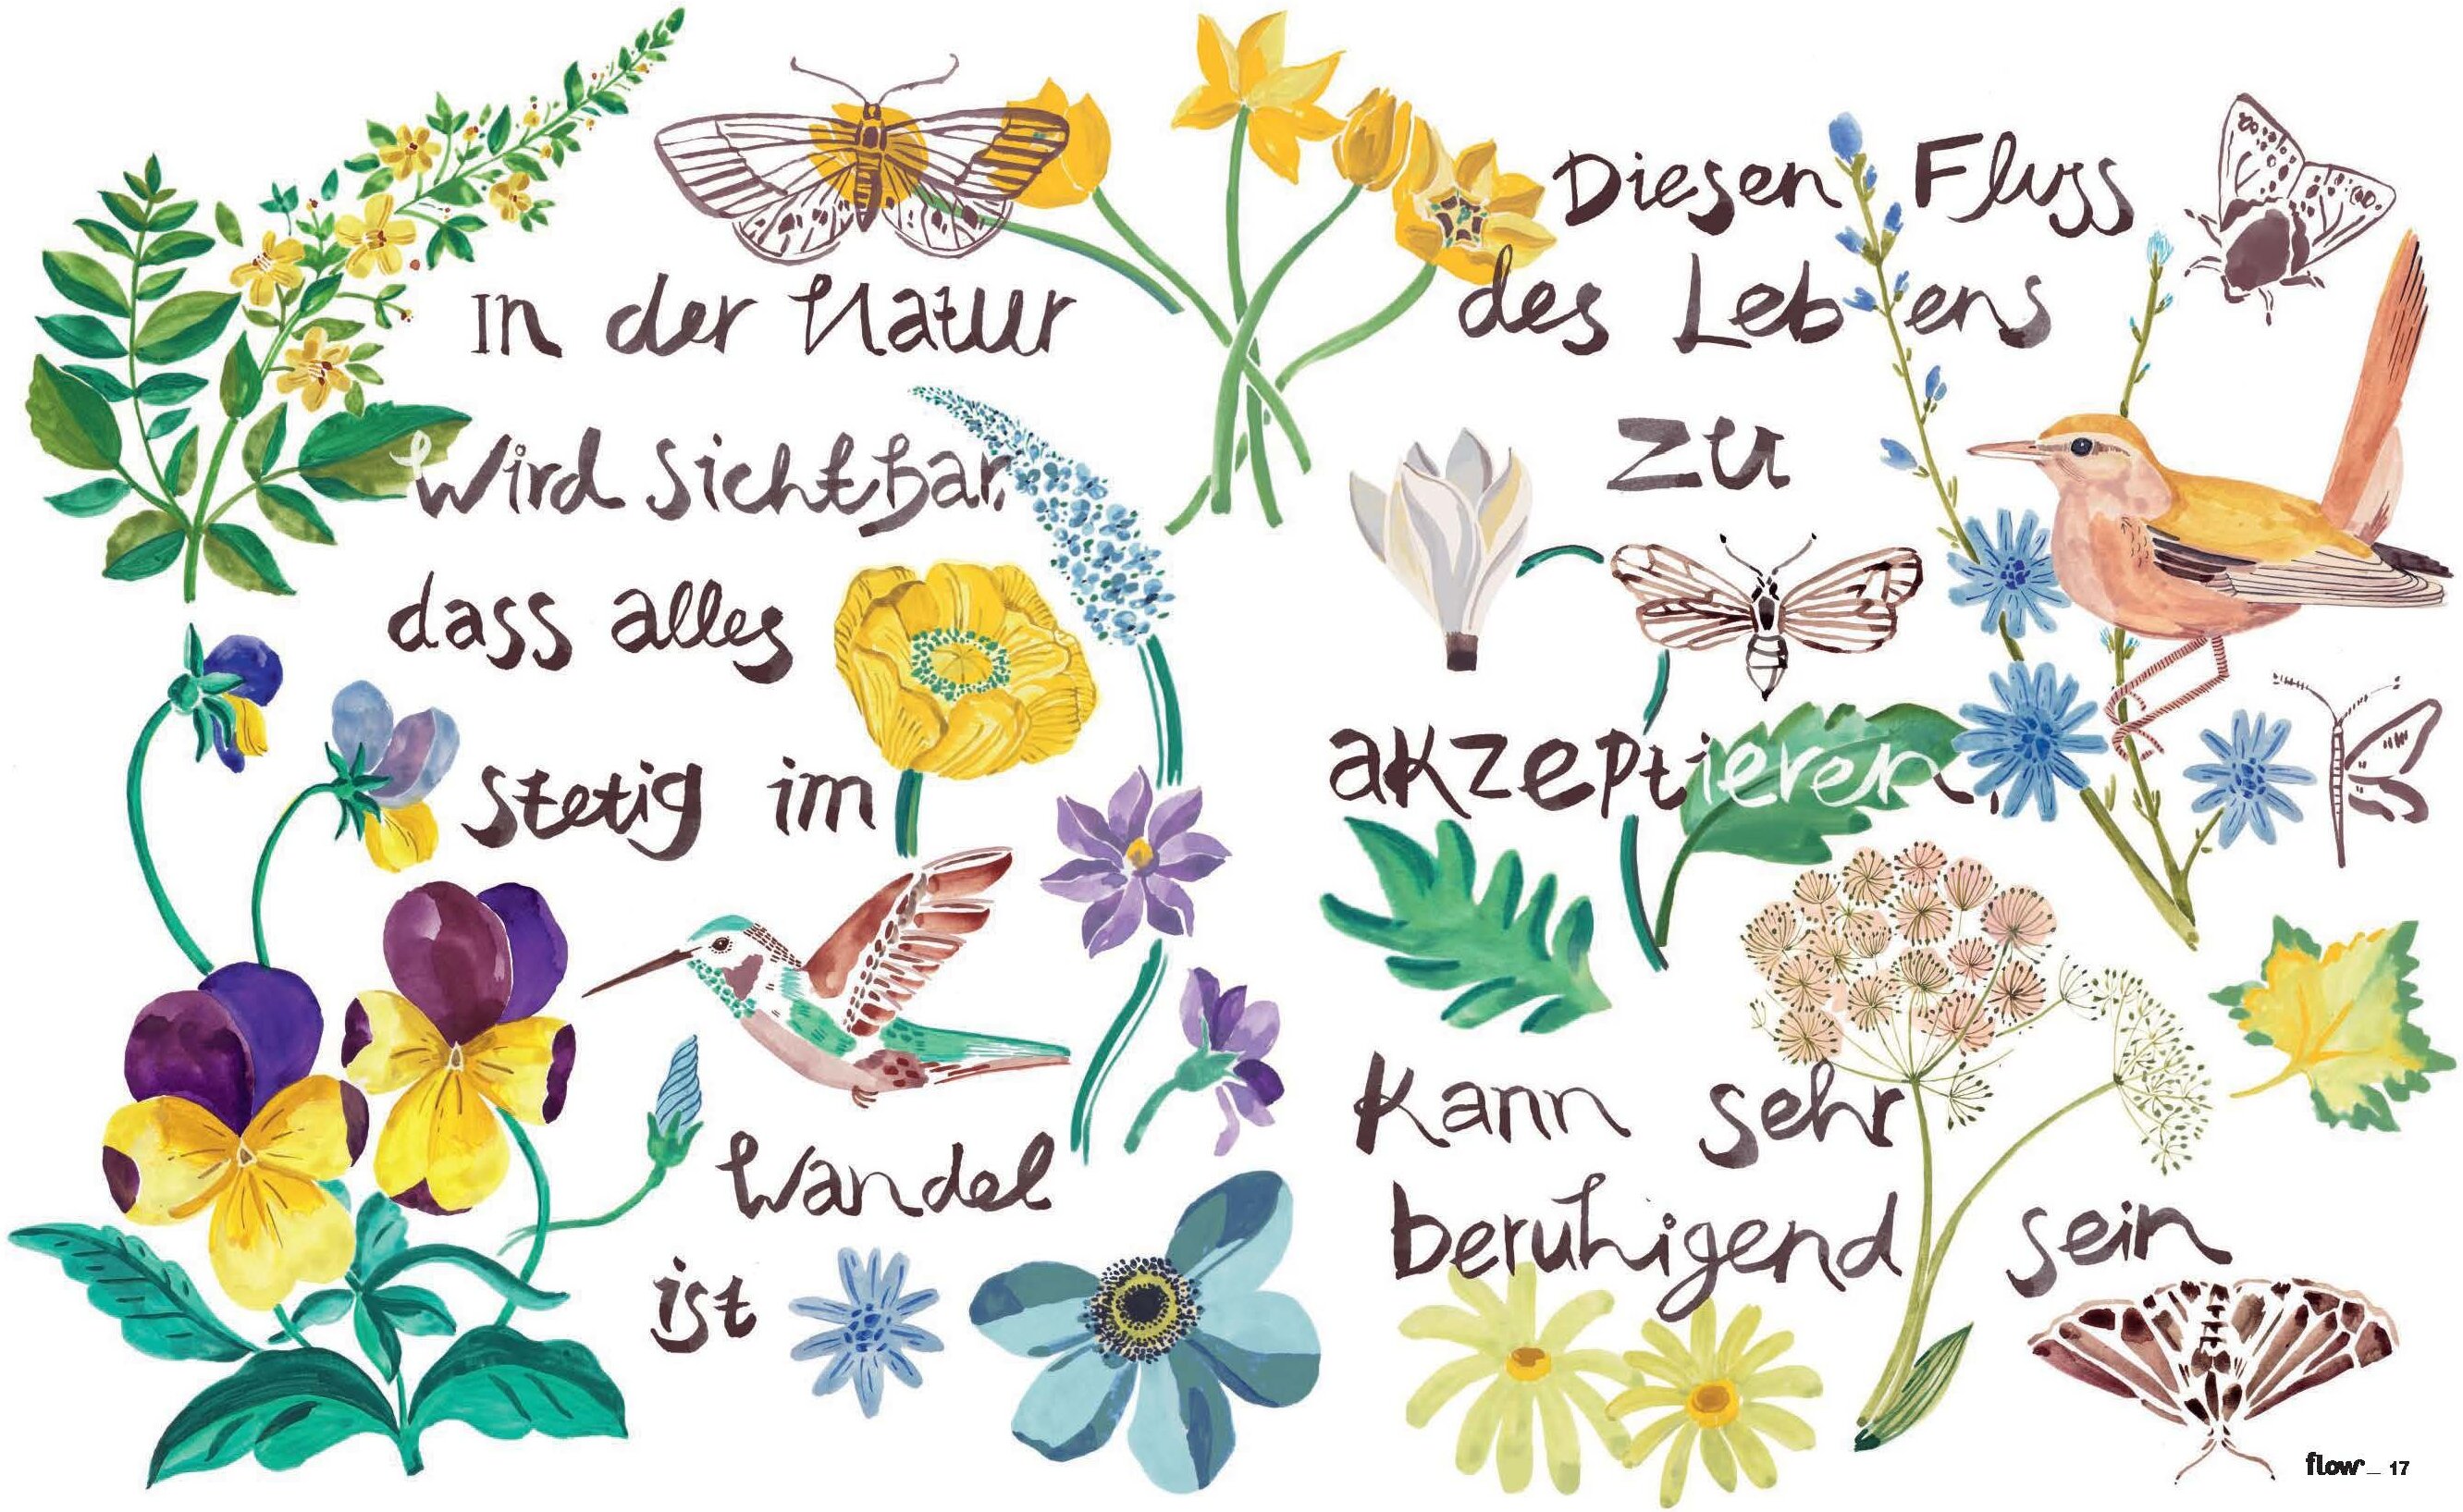 In der Natur
wird sichtbar,
dass alles
stetig im
Wandel
ist
Diesen Fluss
des Lebens
zu
akzeptieren,
kann sehr
beruhigend sein
flow_ 17